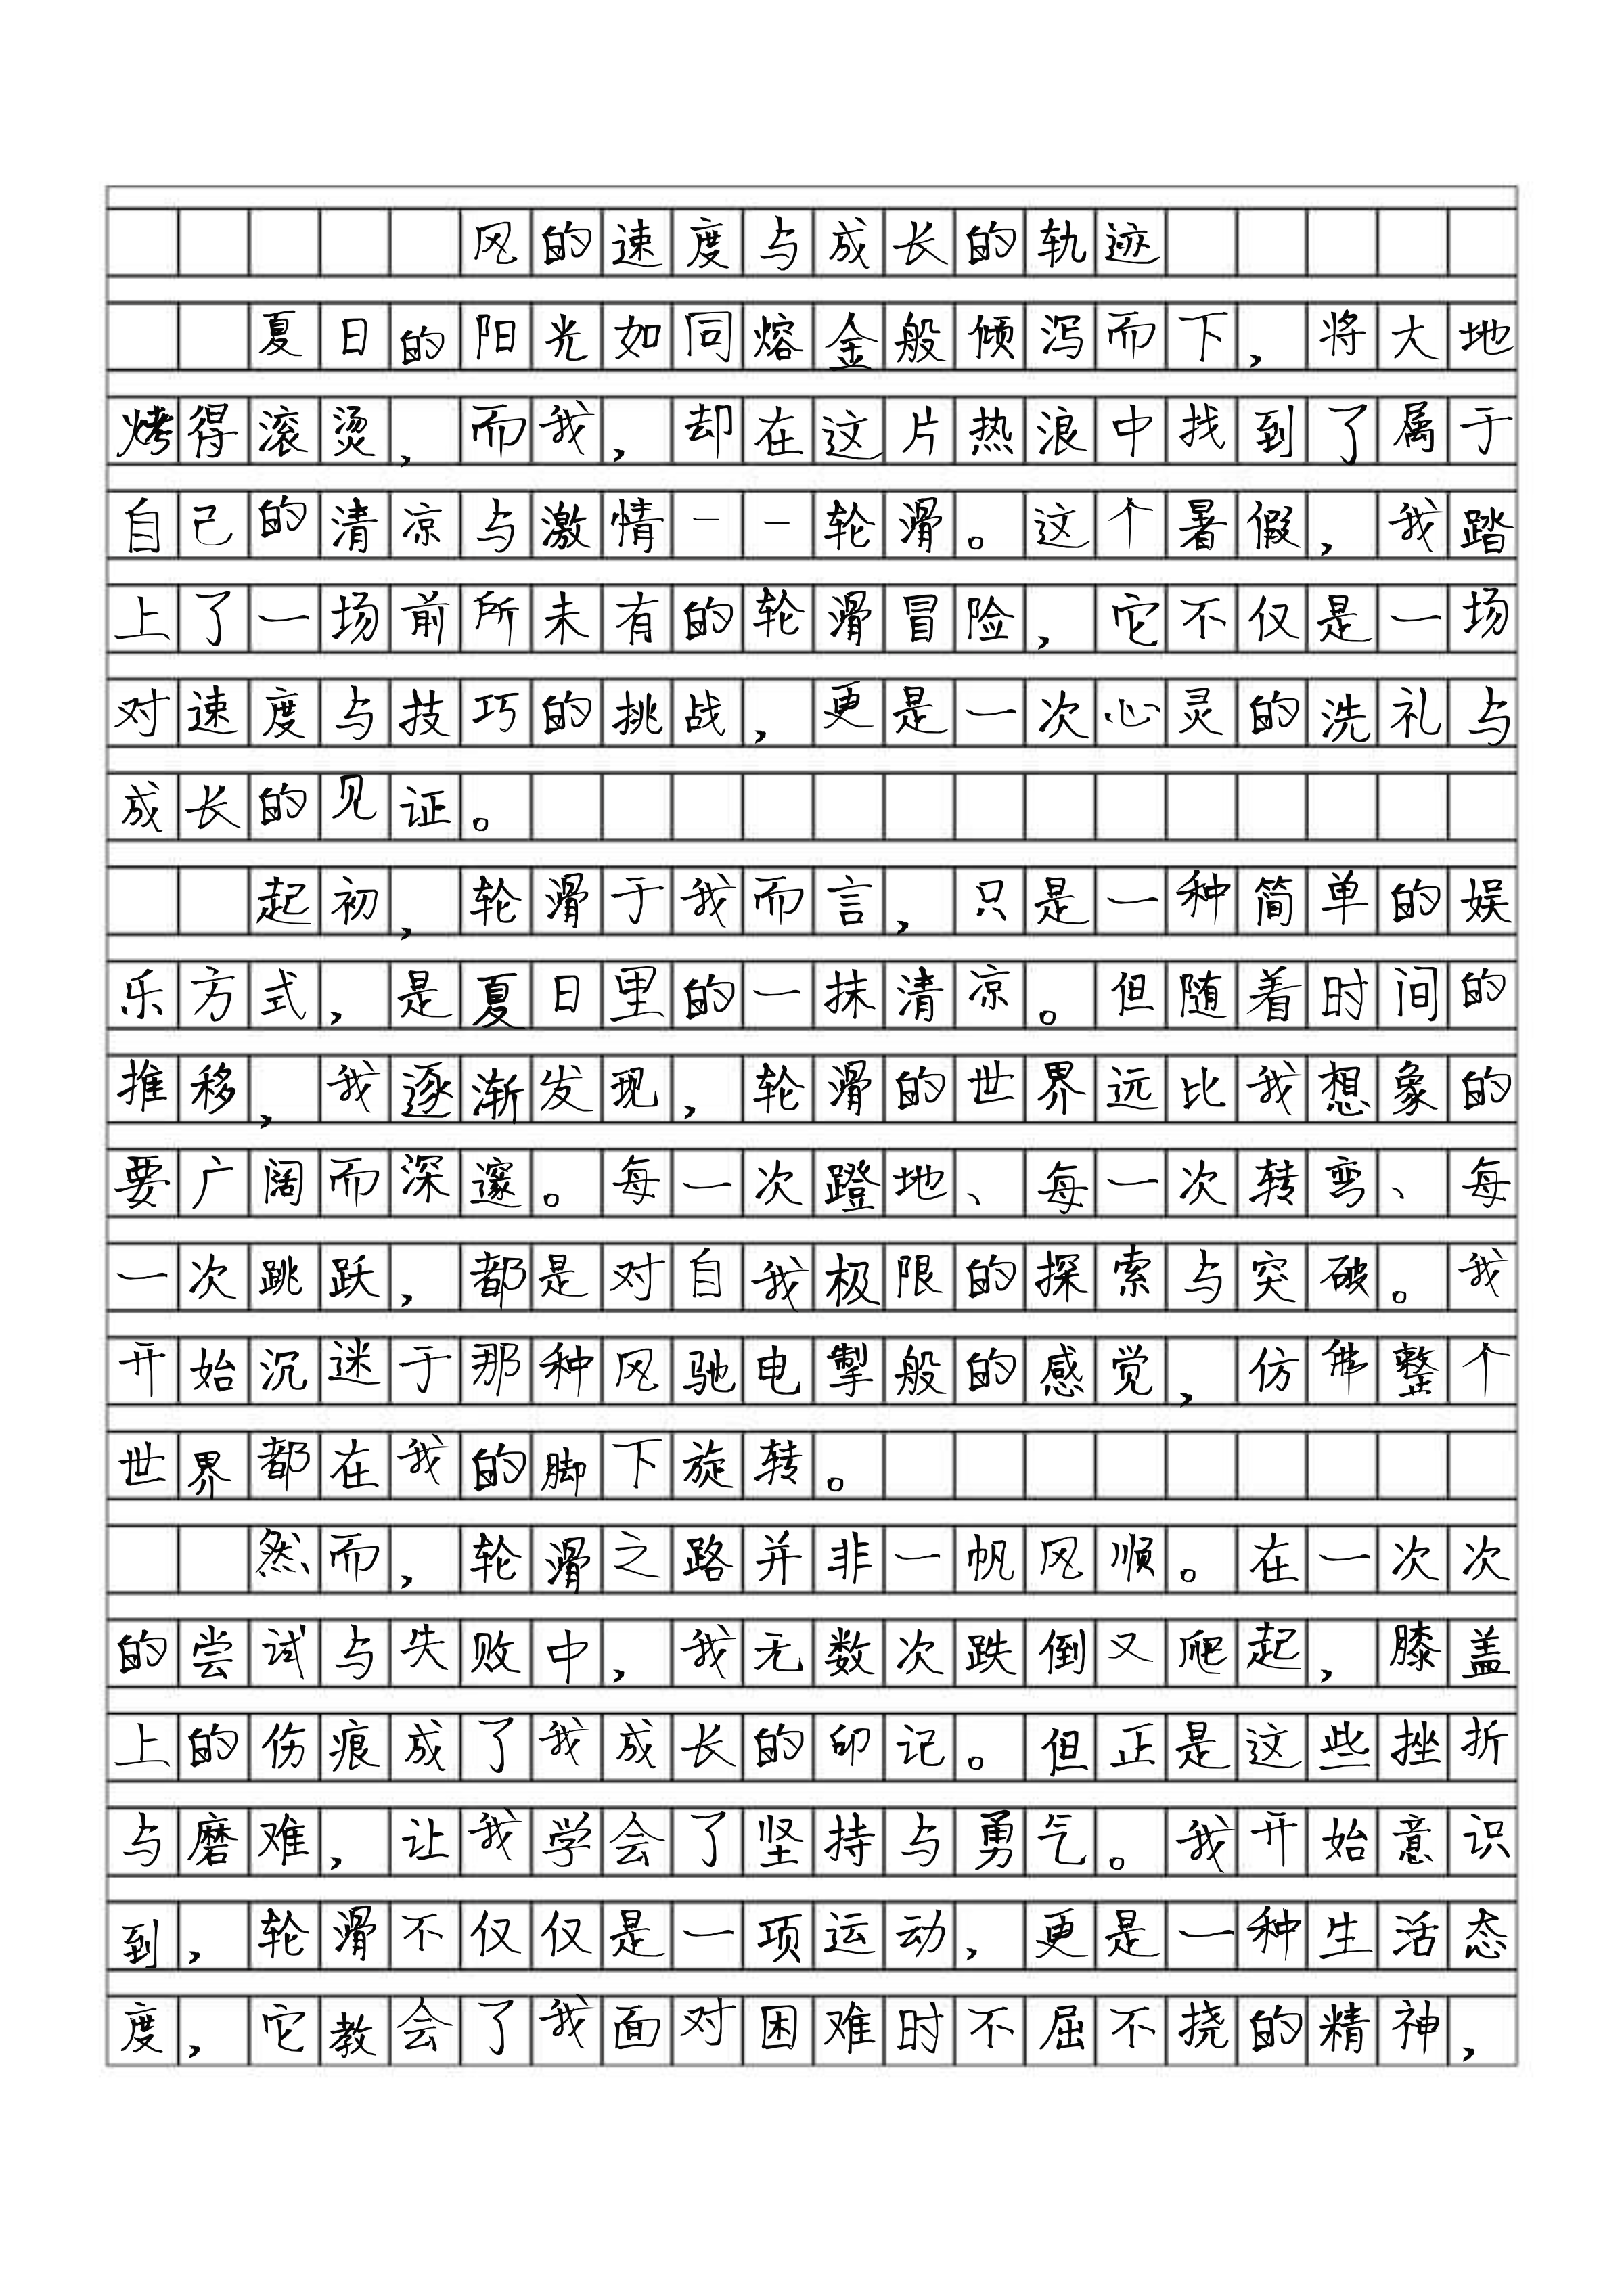 风的速度与成长的轨迹
夏日的阳光如同熔金般倾泻而下，将大地
烤得滚烫，而我，却在这片热浪中找到了属于
自己的清凉与激情——轮滑。这个暑假，我踏
上了一场前所未有的轮滑冒险，它不仅是一场
对速度与技巧的挑战，更是一次心灵的洗礼与
成长的见证。
起初，轮滑于我而言，只是一种简单的娱
乐方式，是夏日里的一抹清凉。但随着时间的
推移，我逐渐发现，轮滑的世界远比我想象的
要广阔而深邃。每一次蹬地、每一次转弯、每
一次跳跃，都是对自我极限的探索与突破。我
开始沉迷于那种风驰电掣般的感觉，仿佛整个
世界都在我的脚下旋转。
然而，轮滑之路并非一帆风顺。在一次次
的尝试与失败中，我无数次跌倒又爬起，膝盖
上的伤痕成了我成长的印记。但正是这些挫折
与磨难，让我学会了坚持与勇气。我开始意识
到，轮滑不仅仅是一项运动，更是一种生活态
度，它教会了我面对困难时不屈不挠的精神，